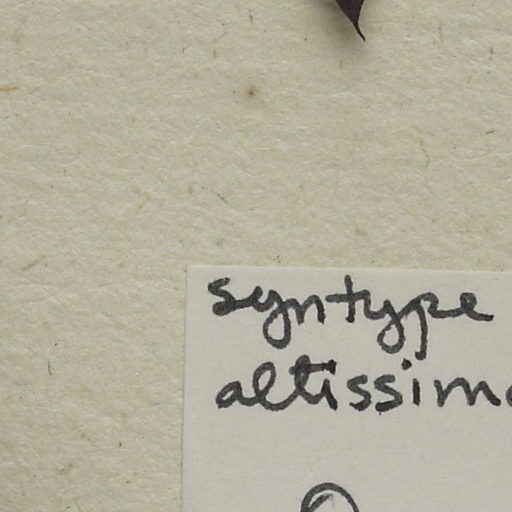 syntype
altissim